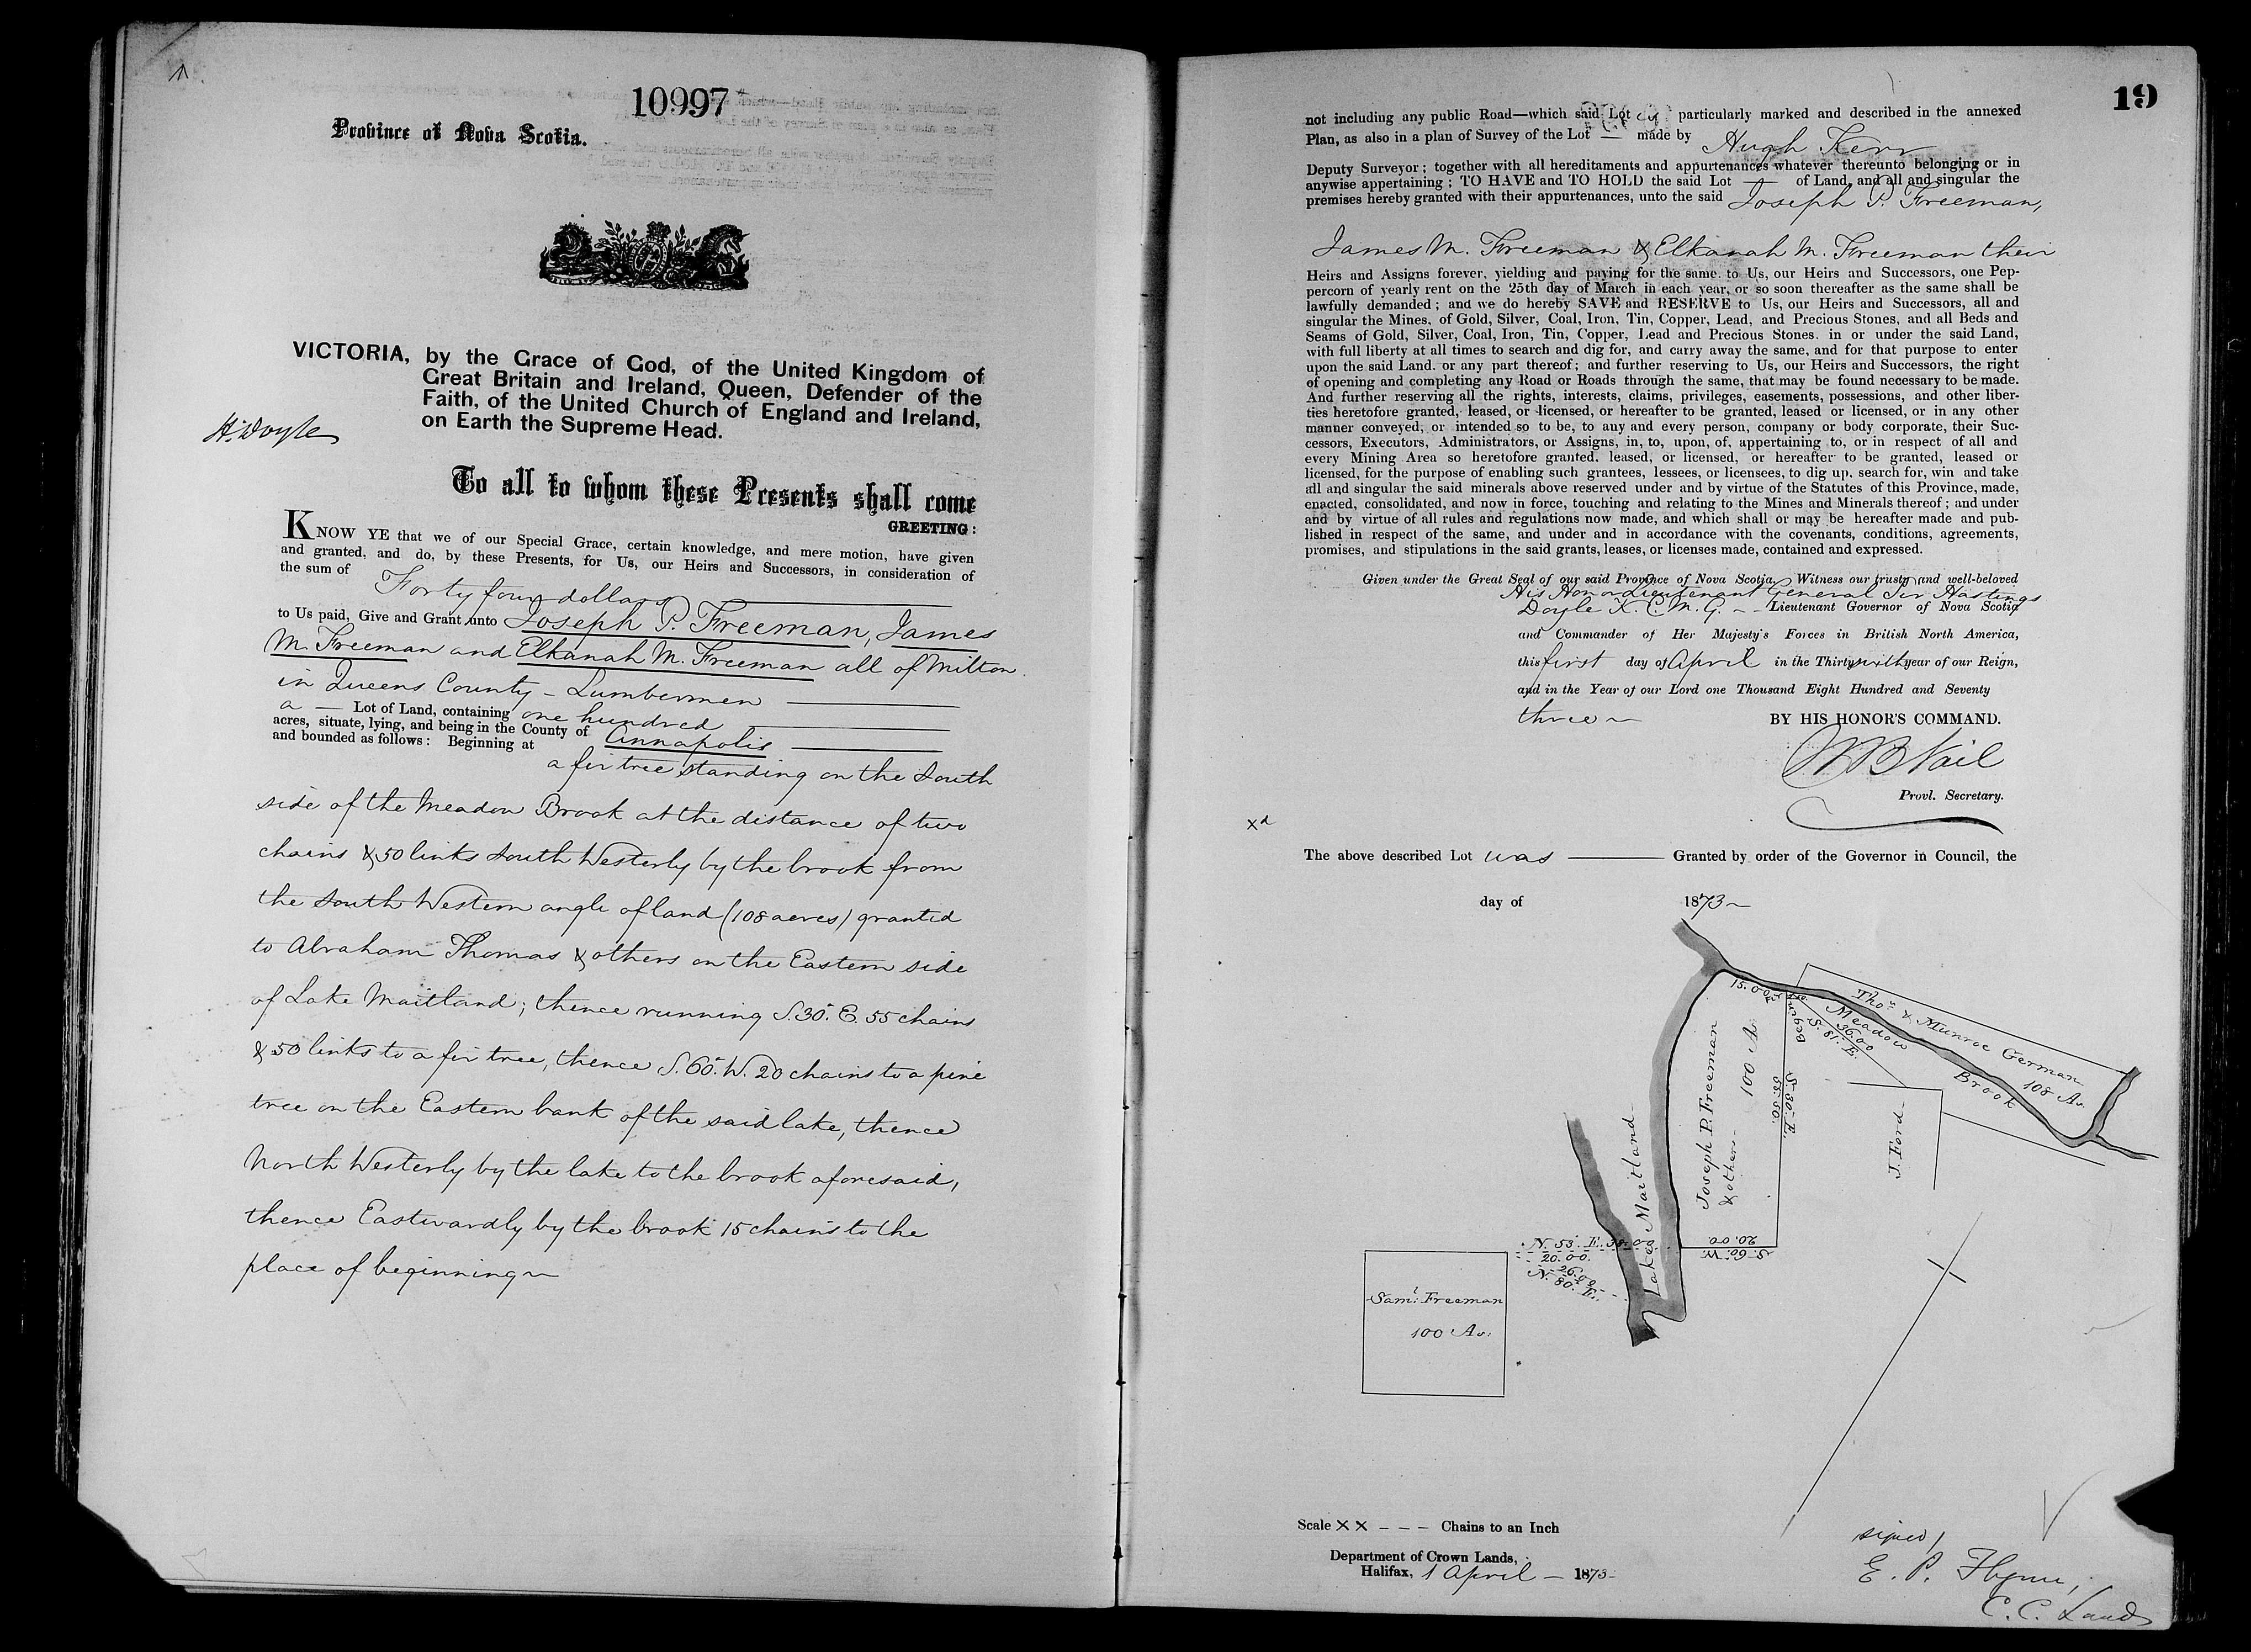 10997
Province of Nova Scotia.
VICTORIA, by the Grace of God, of the United Kingdom of
Great Britain and Ireland, Queen, Defender of the
Faith, of the United Church of England and Ireland,
on Earth the Supreme Head.
H. Doyle
To all to whom these Presents shall come
GREETING:
KNOW YE that we of our Special Grace, certain knowledge, and mere motion, have given
and granted, and do, by these Presents, for Us, our Heirs and Successors, in consideration of
the sum of Forty four dollars
to Us paid, Give and Grant unto Joseph P. Freeman, James
M. Freeman and Elkanah M. Freeman all of Milton
in Queens County - Lumbermen
a — Lot of Land, containing one hundred
acres, situate, lying, and being in the County of Annapolis
and bounded as follows: Beginning at
a fir tree standing on the South
side of the Meadow Brook at the distance of two
chains & 50 links South Westerly by the brook from
the South Western angle of land (108 acres) granted
to Abraham Thomas & others on the Eastern side
of Lake Maitland; thence running S. 30°. E. 55 chains
& 50 links to a fir tree, thence S. 60°. W. 20 chains to a pine
tree on the Eastern bank of the said lake, thence
North Westerly by the lake to the brook aforesaid,
thence Eastwardly by the brook 15 chains to the
place of beginning
19
not including any public Road—which said Lot is particularly marked and described in the annexed
Plan, as also in a plan of Survey of the Lot — made by Hugh Kerr
Deputy Surveyor; together with all hereditaments and appurtenances whatever thereunto belonging or in
anywise appertaining; TO HAVE and TO HOLD the said Lot — of Land, and all and singular the
premises hereby granted with their appurtenances, unto the said Joseph P. Freeman,
James M. Freeman & Elkanah M. Freeman their
Heirs and Assigns forever, yielding and paying for the same, to Us, our Heirs and Successors, one Pep-
percorn of yearly rent on the 25th day of March in each year, or so soon thereafter as the same shall be
lawfully demanded; and we do hereby SAVE and RESERVE to Us, our Heirs and Successors, all and
singular the Mines, of Gold, Silver, Coal, Iron, Tin, Copper, Lead, and Precious Stones, and all Beds and
Seams of Gold, Silver, Coal, Iron, Tin, Copper, Lead and Precious Stones, in or under the said Land,
with full liberty at all times to search and dig for, and carry away the same, and for that purpose to enter
upon the said Land, or any part thereof; and further reserving to Us, our Heirs and Successors, the right
of opening and completing any Road or Roads through the same, that may be found necessary to be made.
And further reserving all the rights, interests, claims, privileges, easements, possessions, and other liber-
ties heretofore granted, leased, or licensed, or hereafter to be granted, leased or licensed, or in any other
manner conveyed, or intended so to be, to any and every person, company or body corporate, their Suc-
cessors, Executors, Administrators, or Assigns, in, to, upon, of, appertaining to, or in respect of all and
every Mining Area so heretofore granted, leased, or licensed, or hereafter to be granted, leased or
licensed, for the purpose of enabling such grantees, lessees, or licensees, to dig up, search for, win and take
all and singular the said minerals above reserved under and by virtue of the Statutes of this Province, made,
enacted, consolidated, and now in force, touching and relating to the Mines and Minerals thereof; and under
and by virtue of all rules and regulations now made, and which shall or may be hereafter made and pub-
lished in respect of the same, and under and in accordance with the covenants, conditions, agreements,
promises, and stipulations in the said grants, leases, or licenses made, contained and expressed.
Given under the Great Seal of our said Province of Nova Scotia. Witness our trusty and well-beloved
His Honor Lieutenant General Sir Hastings
Doyle K. C. M. G. -- Lieutenant Governor of Nova Scotia
and Commander of Her Majesty's Forces in British North America,
this first day of April in the Thirty sixth year of our Reign,
and in the Year of our Lord one Thousand Eight Hundred and Seventy
three BY HIS HONOR'S COMMAND.
W B Vail
Provl. Secretary.
xd
The above described Lot was Granted by order of the Governor in Council, the
day of 1873
15.00
Thos. & Munroe German
108 As.
Meadow
Brook
36.00
S. 81°. E.
S. 30°. E.
55.50.
Joseph P. Freeman
& others
100 As.
J. Ford
Lake Maitland
S. 60°. W.
20.00
N. 53°. E. 38.00
20.00.
26.00
N. 80°. E.
Saml. Freeman
100 As.
Scale X X - - - Chains to an Inch
Department of Crown Lands,
Halifax, 1 April — 1873-
signed/
E. P. Flynn,
C. C. Lands